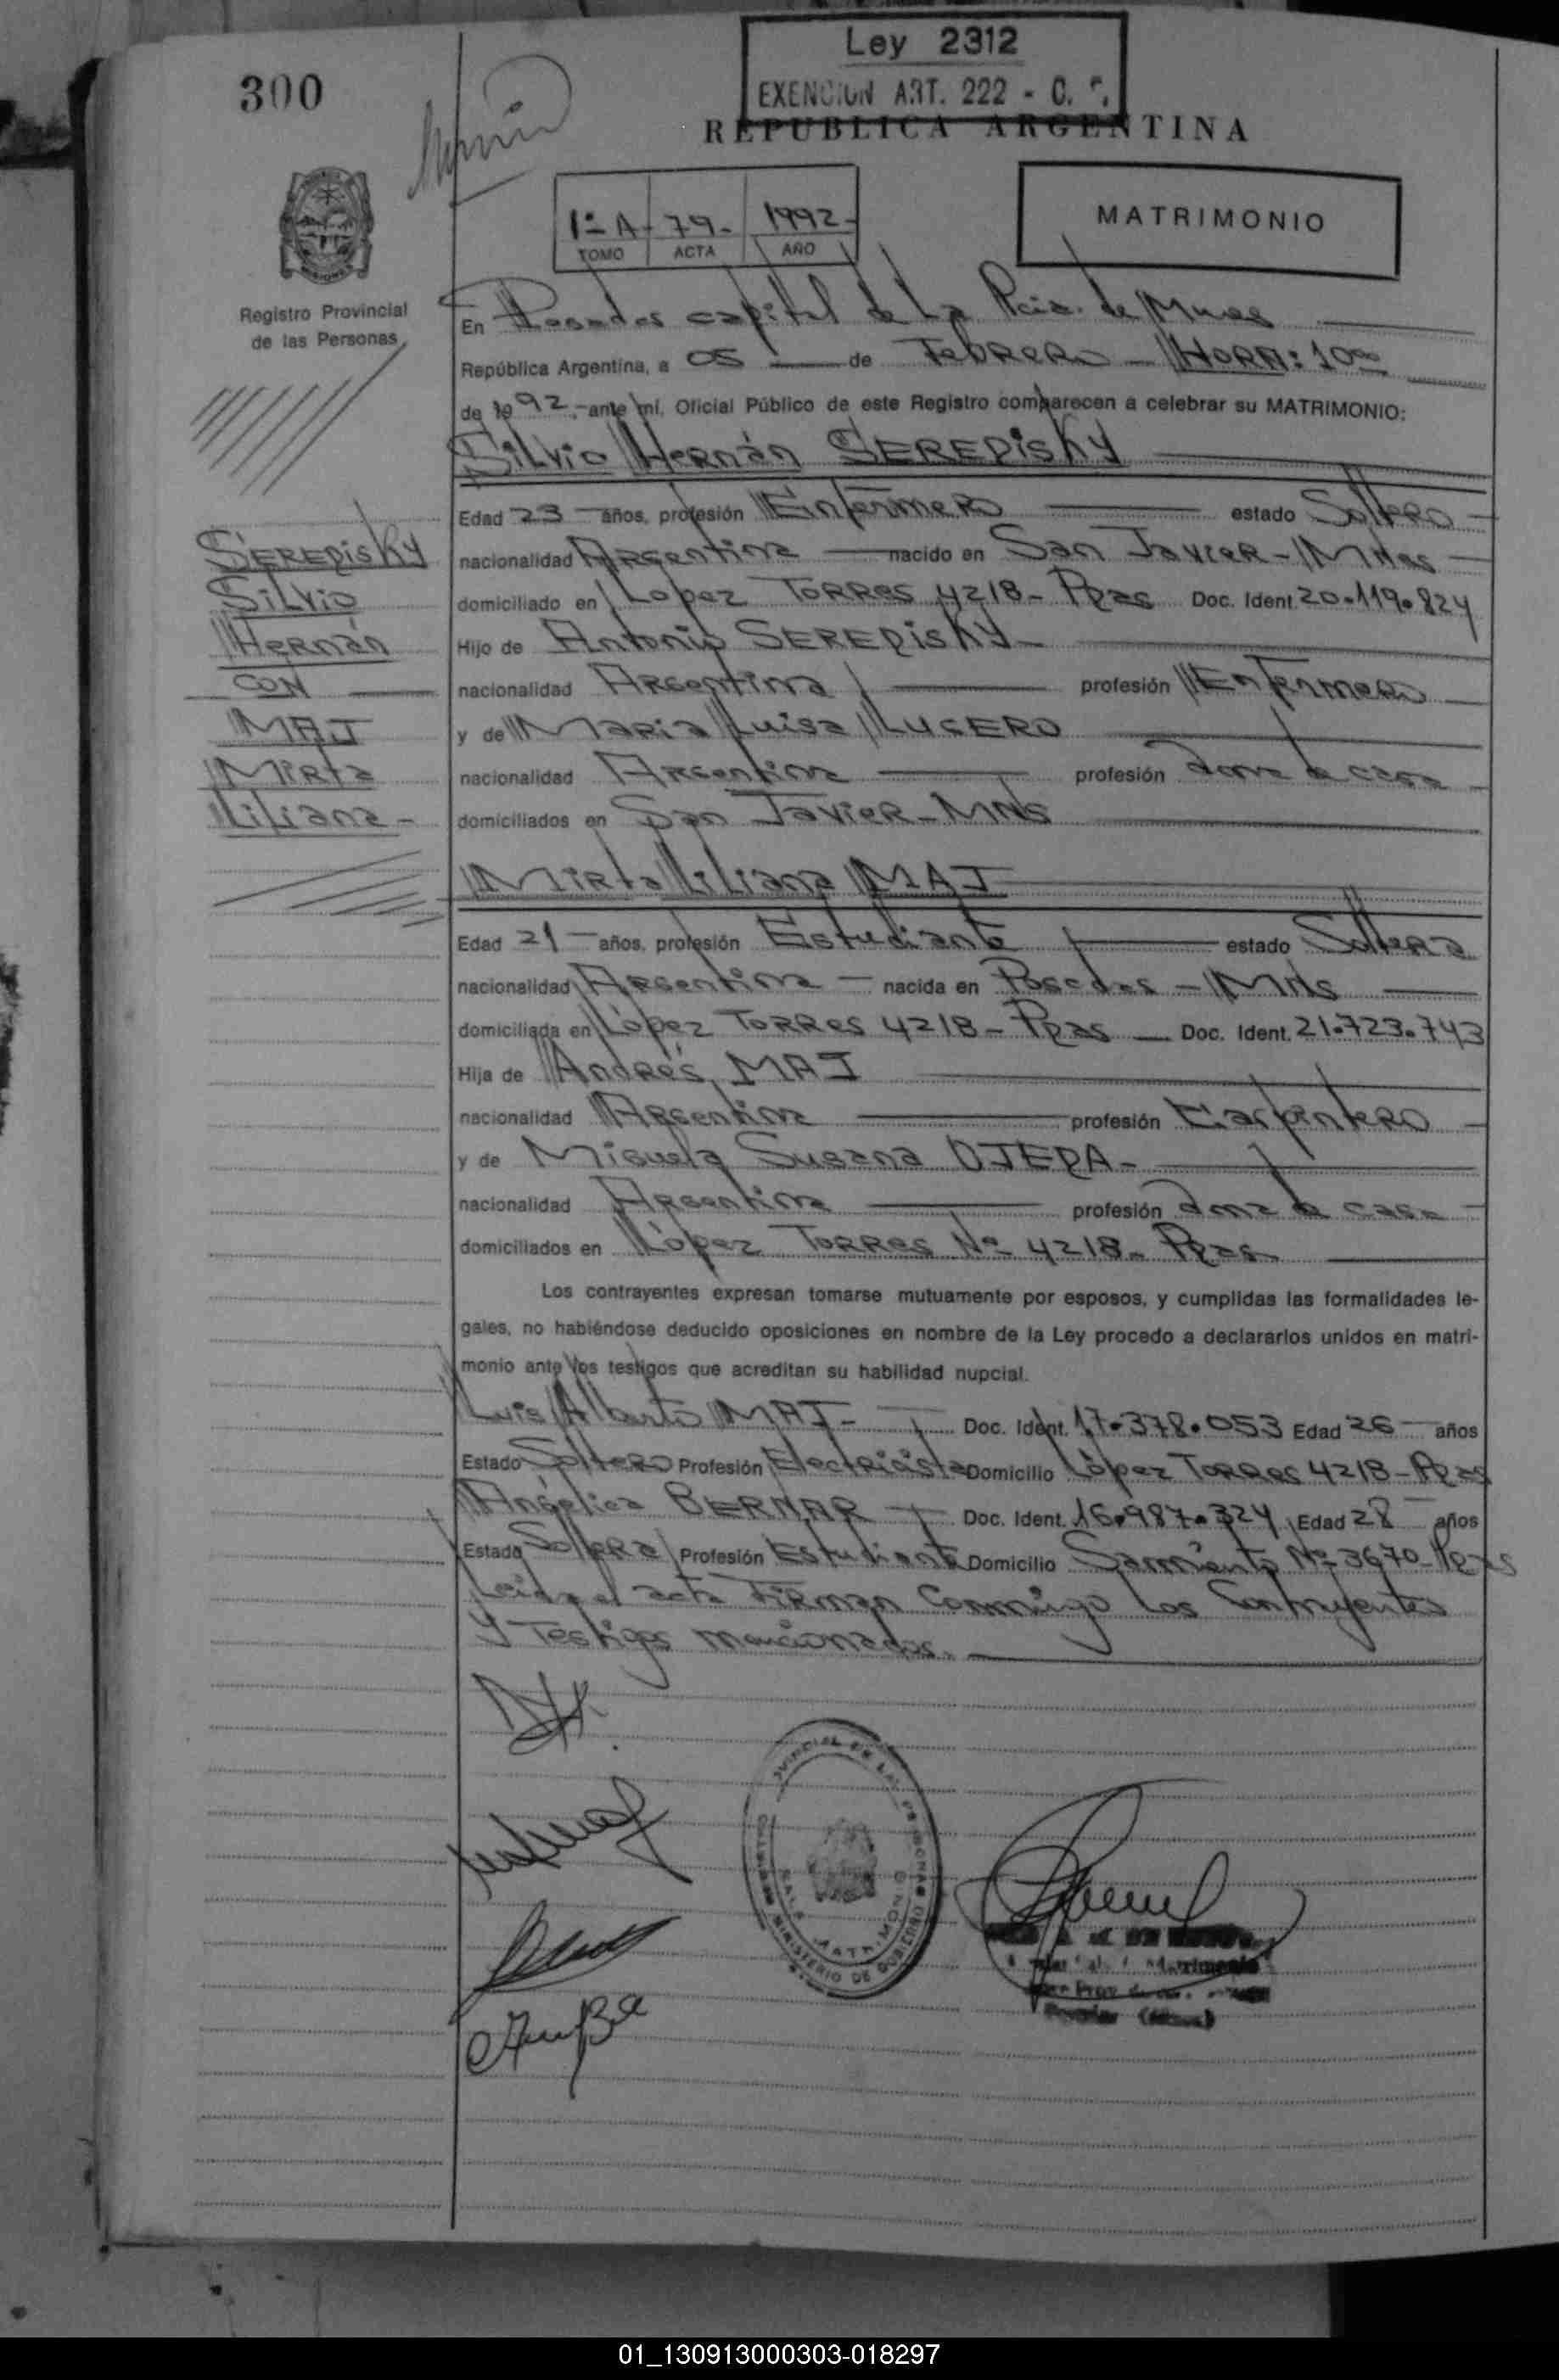 Ley 2312
EXENCION ART. 222 - C.
300
REPUBLICA ARGENTINA
1º A - 79 - 1992 -
TOMO ACTA AÑO
MATRIMONIO
Registro Provincial
de las Personas
En Posadas capital de La Pcia. de Mnes
República Argentina, a 05 de Febrero - HORA: 10
de 19 92, ante mí, Oficial Público de este Registro comparecen a celebrar su MATRIMONIO:
Silvio Hernán SEREDISKY
Edad 23 años, profesión Enfermero estado Soltero
nacionalidad Argentina nacido en San Javier - Mnes
domiciliado en López Torres 4218 - Pdas Doc. Ident. 20.119.824
Hijo de Antonio SEREDISKY -
nacionalidad Argentina profesión Enfermero
y de Maria Luisa LUCERO
nacionalidad Argentina profesión Ama de casa
domiciliados en San Javier - MNS
SEREDISKY
Silvio
Hernán
CON
MAJ
Mirta
Liliana -
Mirta Liliana MAJ
Edad 21 años, profesión Estudiante estado Soltera
nacionalidad Argentina nacida en Posadas - MNS
domiciliada en López Torres 4218 - Pdas Doc. Ident. 21.723.743
Hija de Andrés MAJ
nacionalidad Argentina profesión Carpintero
y de Miguela Susana OJEDA -
nacionalidad Argentina profesión Ama de casa
domiciliados en López Torres Nº 4218 - Pdas
Los contrayentes expresan tomarse mutuamente por esposos, y cumplidas las formalidades le-
gales, no habiéndose deducido oposiciones en nombre de la Ley procedo a declararlos unidos en matri-
monio ante los testigos que acreditan su habilidad nupcial.
Luis Alberto MAJ - Doc. Ident. 17.378.053 Edad 26 años
Estado Soltero Profesión Electricista Domicilio López Torres 4218 - Pdas
Angélica BERNAR Doc. Ident. 16.987.324 Edad 28 años
Estado Soltera Profesión Estudiante Domicilio Sarmiento Nº 3670 - Pdas
Leida el acta Firman Conmigo Los Contrayentes
Y Testigos mencionados.
MINISTERIO DE GOBIERNO
01_130913000303-018297